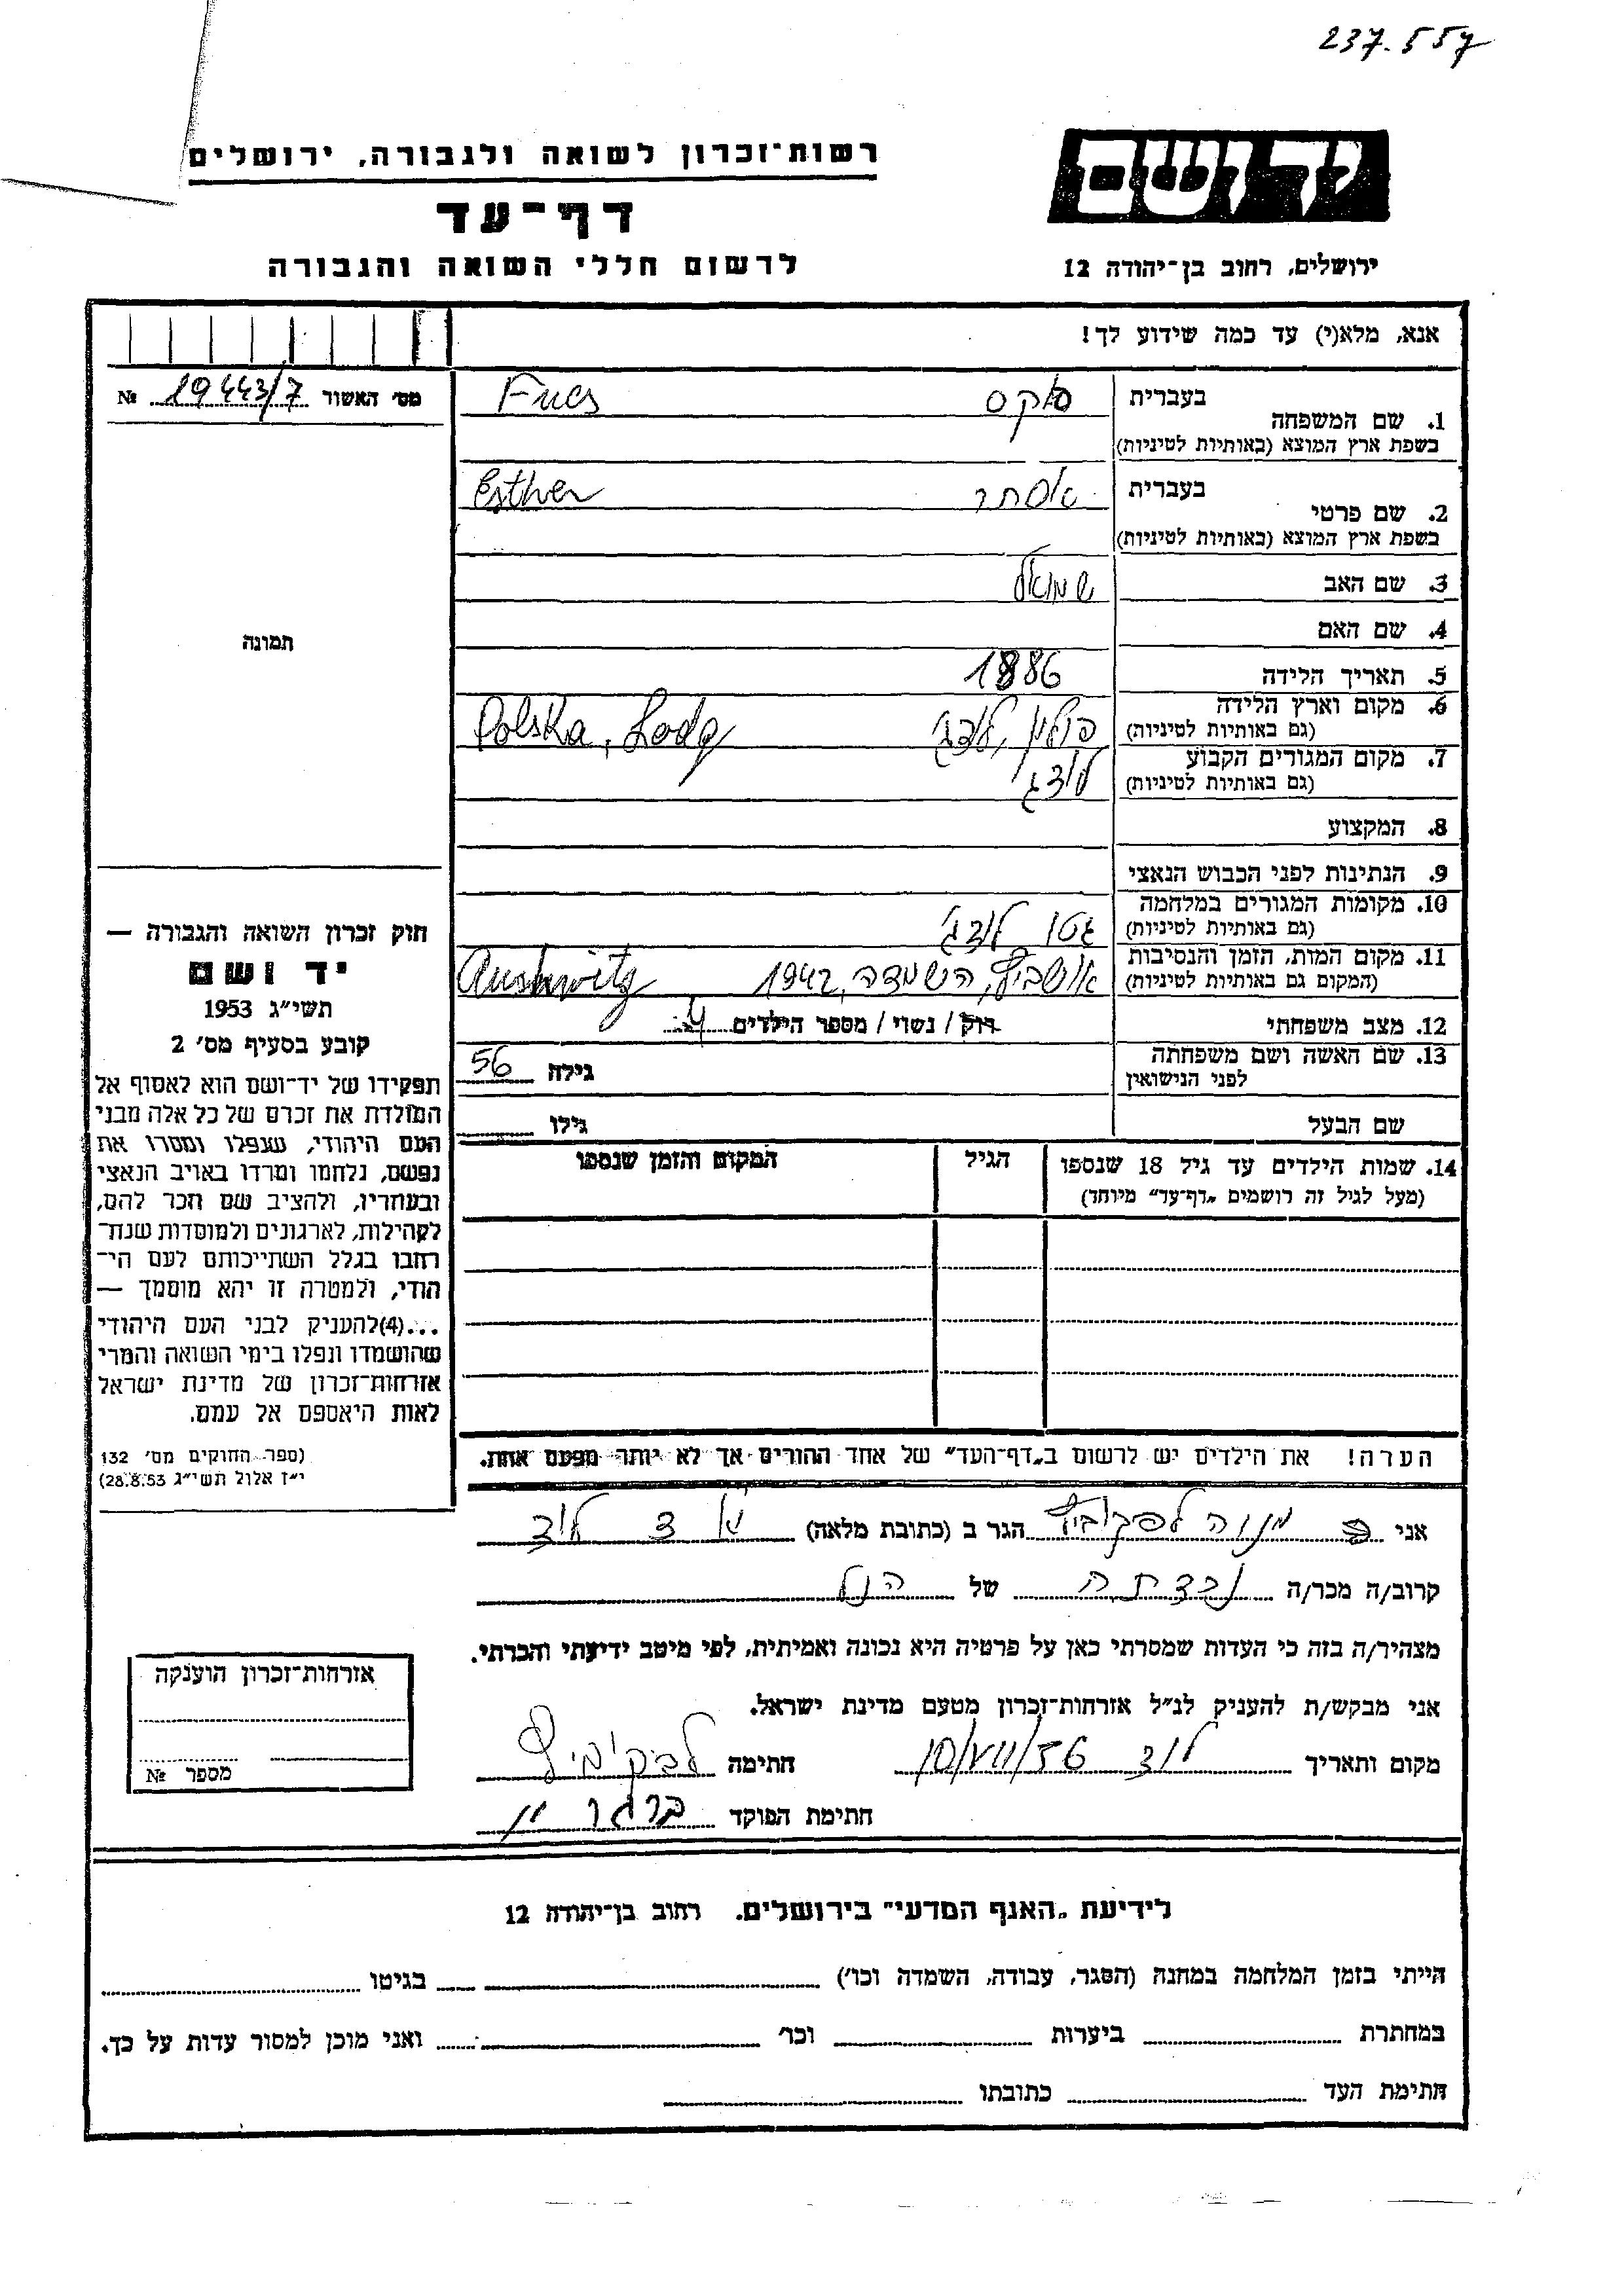 237.557
יד ושם
רשות־זכרון לשואה ולגבורה, ירושלים
דף־עד
לרשום חללי השואה והגבורה
ירושלים, רחוב בן־יהודה 12
אנא, מלא(י) עד כמה שידוע לך!
מס' האשור 19443/7 №
תמונה
בעברית
1. שם המשפחה
פוקס Fucs
בשפת ארץ המוצא (באותיות לטיניות)
בעברית
2. שם פרטי
אסתר Esther
בשפת ארץ המוצא (באותיות לטיניות)
3. שם האב שמואל
4. שם האם
5. תאריך הלידה 1886
6. מקום וארץ הלידה פולין, לודג' Polska, Lodz
(גם באותיות לטיניות)
7. מקום המגורים הקבוע לודג'
(גם באותיות לטיניות)
8. המקצוע
9. הנתינות לפני הכבוש הנאצי
10. מקומות המגורים במלחמה גטו לודג'
(גם באותיות לטיניות)
11. מקום המות, הזמן והנסיבות אושביץ, השמדה, 1942 Aushwitz
(המקום גם באותיות לטיניות)
12. מצב משפחתי רוק / נשוי / מספר הילדים 4
13. שם האשה ושם משפחתה
לפני הנישואין
גילה 56
שם הבעל גילו
14. שמות הילדים עד גיל 18 שנספו הגיל המקום והזמן שנספו
(מעל לגיל זה רושמים „דף־עד” מיוחד)
הערה! את הילדים יש לרשום ב„דף־העד” של אחד ההורים אך לא יותר מפעם אחת.
חוק זכרון השואה והגבורה —
יד ושם
תשי״ג 1953
קובע בסעיף מס' 2
תפקידו של יד־ושם הוא לאסוף אל
המולדת את זכרם של כל אלה מבני
העם היהודי, שנפלו ומסרו את
נפשם, נלחמו ומרדו באויב הנאצי
ובעוזריו, ולהציב שם וזכר להם,
לקהילות, לארגונים ולמוסדות שנח־
רבו בגלל השתייכותם לעם הי־
הודי, ולמטרה זו יהא מוסמך —
...(4) להעניק לבני העם היהודי
שהושמדו ונפלו בימי השואה והמרי
אזרחות־זכרון של מדינת ישראל
לאות היאספם אל עמם.
(ספר החוקים מס' 132
י״ז אלול תשי״ג 28.8.53)
אני מנוה לפקוביץ הגר ב (כתובת מלאה) לוד
קרוב/ה מכר/ה של הנ״ל
מצהיר/ה בזה כי העדות שמסרתי כאן על פרטיה היא נכונה ואמיתית, לפי מיטב ידיעתי והכרתי.
אני מבקש/ת להעניק לנ״ל אזרחות־זכרון מטעם מדינת ישראל.
מקום ותאריך לוד 10/VII/56 חתימה
חתימת הפוקד ברגר
אזרחות־זכרון הוענקה
מספר №
לידיעת „האגף המדעי” בירושלים. רחוב בן־יהודה 12
הייתי בזמן המלחמה במחנה (הסגר, עבודה, השמדה וכו') בגיטו
במחתרת ביערות וכו' ואני מוכן למסור עדות על כך.
חתימת העד כתובתו